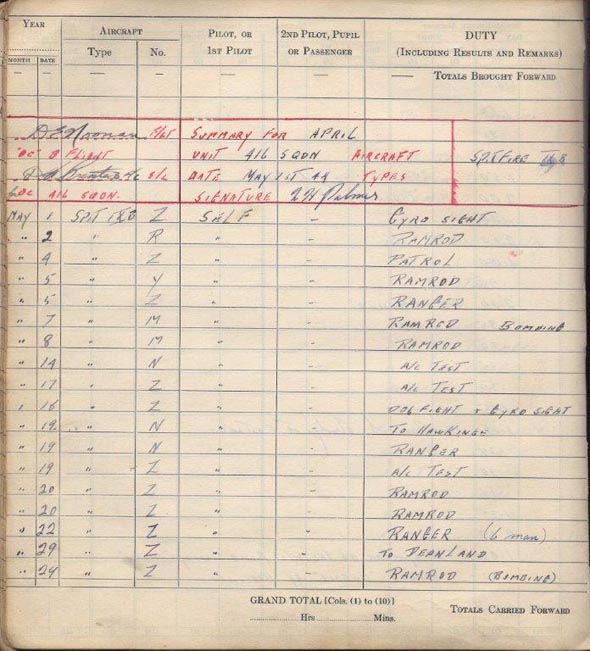 YEAR AIRCRAFT PILOT, OR 2ND PILOT, PUPIL DUTY
MONTH DATE Type No. 1ST PILOT OR PASSENGER (INCLUDING RESULTS AND REMARKS)
— — — — — — — TOTALS BROUGHT FORWARD
F/LT SUMMARY FOR APRIL
OC B FLIGHT UNIT 416 SQDN AIRCRAFT SPITFIRE
S/L DATE MAY 1ST 44 TYPES
OC 416 SQDN. SIGNATURE Palmer
MAY 1 SPIT Z SELF – GYRO SIGHT
" 2 " R " – RAMROD
" 4 " Z " – PATROL
" 5 " Y " – RAMROD
" 5 " Z " – RANGER
" 7 " M " – RAMROD BOMBING
" 8 " M " – RAMROD
" 14 " N " – A/C TEST
" 17 " Z " – A/C TEST
" 16 " Z " – DOG FIGHT + GYRO SIGHT
" 19 " N " – TO HAWKINGE
" 19 " N " – RANGER
" 19 " Z " – A/C TEST
" 20 " Z " – RAMROD
" 20 " Z " – RAMROD
" 22 " Z " – RANGER (6 man)
" 29 " Z " – TO DEANLAND
" 24 " Z " – RAMROD (BOMBING)
GRAND TOTAL [Cols. (1) to (10)]
Hrs Mins. TOTALS CARRIED FORWARD